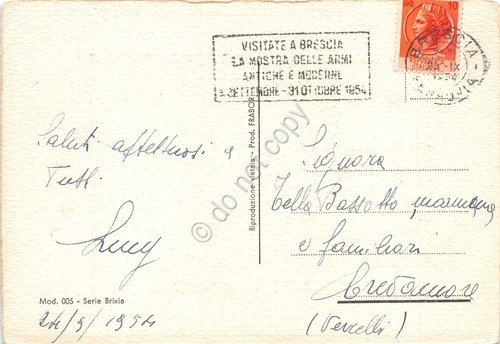 VISITATE A BRESCIA
LA MOSTRA DELLE ARMI
ANTICHE E MODERNE
SETTEMBRE - 31 OTTOBRE 1954
10
BRESCIA
IX
1954
FERROVIA
Saluti affettuosi a
Tutti
Lucy
Mod. 005 - Serie Brixia
24/9/1954
Riproduzione vietata - Prod. FRABOR
do not copy
Signora
Tella Bassotto, mamma
e familiari
Crescentino
(Vercelli)